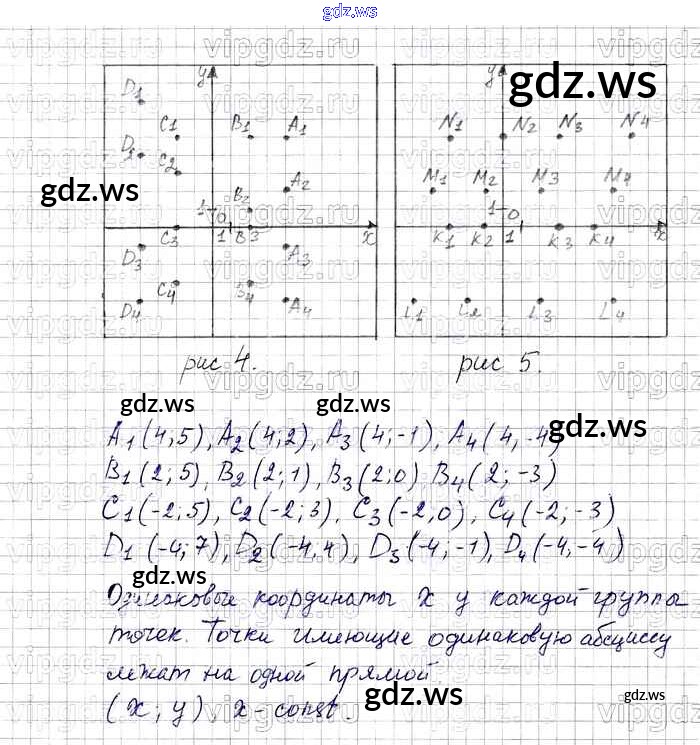 gdz.ws
vipgdz.ru
gdz.ws
y
D1 C1 B1 A1
D2 C2 B2 A2
1 0
C3 1 B3 x
D3 A3
D4 C4 B4 A4
y
N1 N2 N3 N4
M1 M2 M3 M4
1 0
K1 K2 1 K3 K4 x
L1 L2 L3 L4
gdz.ws
рис 4. рис 5.
gdz.ws gdz.ws gdz.ws
A1(4;5), A2(4;2), A3(4;-1), A4(4,-4)
B1(2;5), B2(2;1), B3(2;0) B4(2;-3)
C1(-2;5), C2(-2;3), C3(-2,0), C4(-2;-3)
D1(-4;7), D2(-4,4), D3(-4;-1), D4(-4,-4)
gdz.ws
Одинаковые координаты x у каждой группы
точек. Точки имеющие одинаковую абсциссу
лежат на одной прямой
gdz.ws gdz.ws
(x; y), x-const.